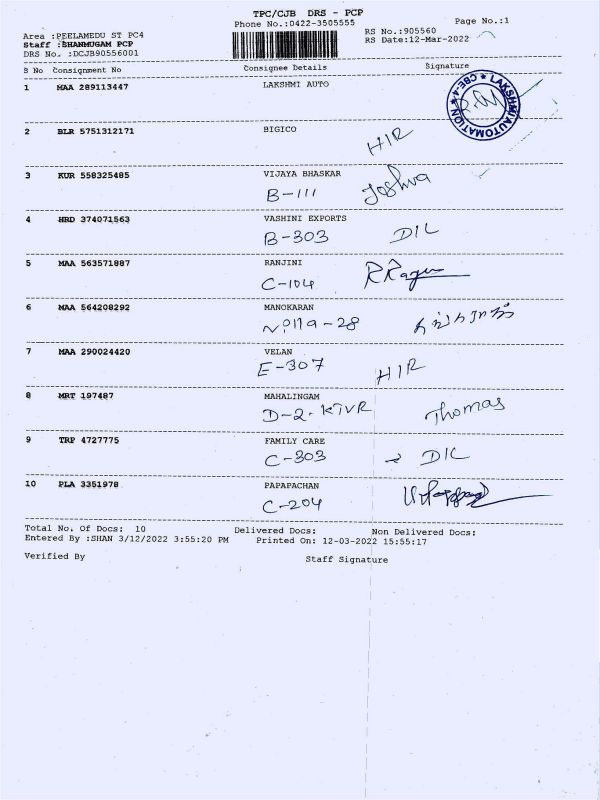 TPC/CJB DRS - PCP
Phone No.:0422-3505555 Page No.:1
Area :PEELAMEDU ST PC4 RS No.:905560
Staff :SHANMUGAM PCP RS Date:12-Mar-2022
DRS No. :DCJB90556001
S No Consignment No Consignee Details Signature
1 MAA 289113447 LAKSHMI AUTO
LAKSHMI AUTOMATION ★ CBE-4 ★
2 BLR 5751312171 BIGICO
HIR
3 KUR 558325485 VIJAYA BHASKAR
B-111 Joshva
4 HRD 374071563 VASHINI EXPORTS
B-303 DIL
5 MAA 563571887 RANJINI
C-104 R Ragu
6 MAA 564208292 MANOKARAN
17a-28
7 MAA 290024420 VELAN
E-307 HIR
8 MRT 197487 MAHALINGAM
D-2. KTVR Thomas
9 TRP 4727775 FAMILY CARE
C-303 DIL
10 PLA 3351978 PAPAPACHAN
C-204
Total No. Of Docs: 10 Delivered Docs: Non Delivered Docs:
Entered By :SHAN 3/12/2022 3:55:20 PM Printed On: 12-03-2022 15:55:17
Verified By Staff Signature